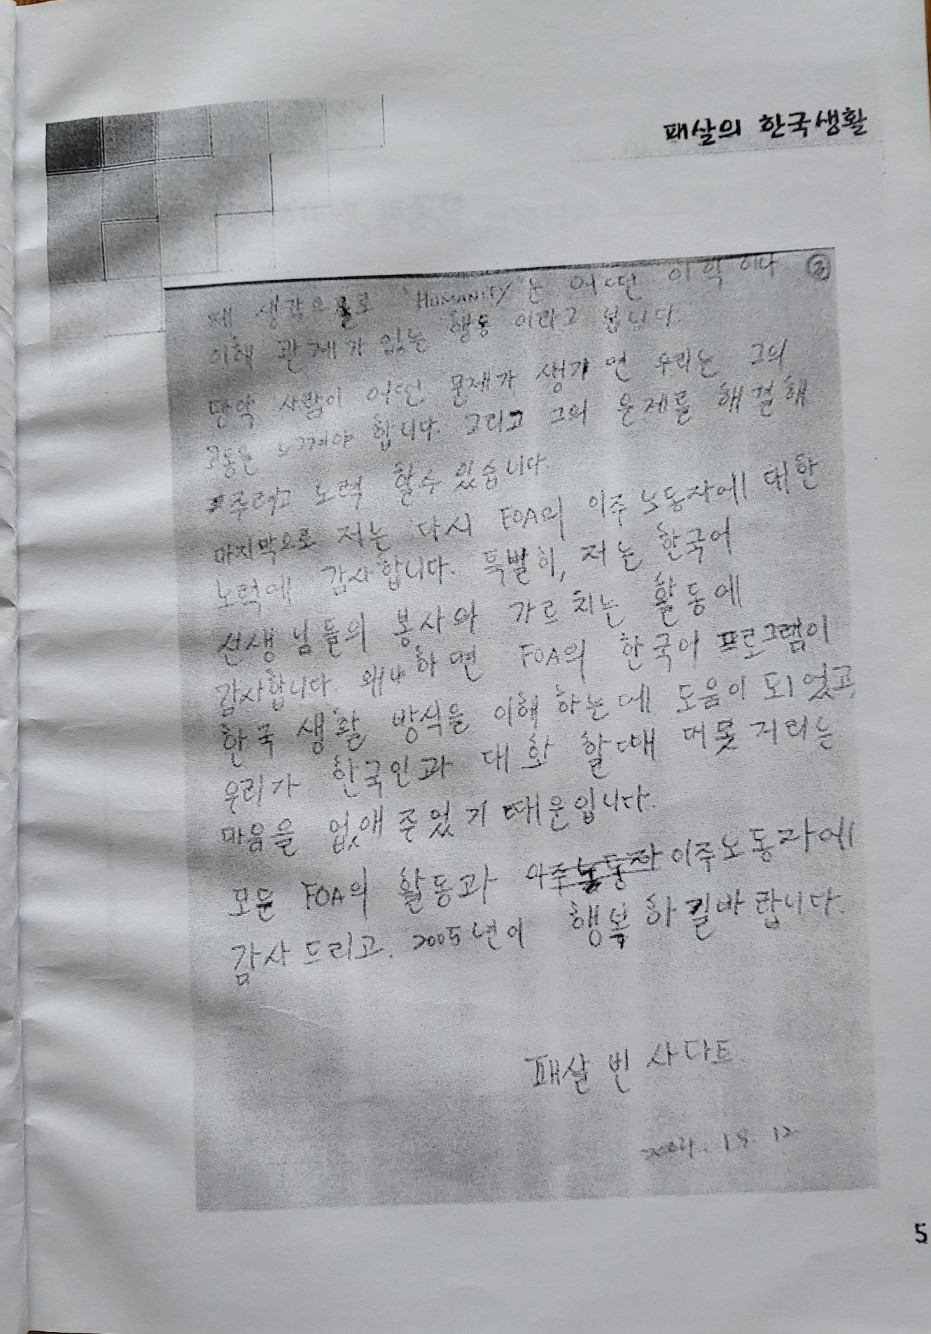 패살의 한국생활
제 생각으로 'HUMANITY'는 어떤 이다 ③
이해 관계가 있는 행동 이라고 봅니다.
만약 사람이 어떤 문제가 생기면 우리는 그의
고통을 느껴야 합니다. 그리고 그의 문제를 해결해
주려고 노력 할수 있습니다.
마지막으로 저는 다시 FOA의 이주 노동자에 대한
노력에 감사합니다. 특별히, 저는 한국어
선생님들의 봉사와 가르치는 활동에
감사합니다. 왜냐하면 FOA의 한국어 프로그램이
한국 생활 방식을 이해 하는데 도움이 되었고,
우리가 한국인과 대화 할때 머뭇거리는
마음을 없애 주었기 때문입니다.
모든 FOA의 활동과 이주노동자에
감사 드리고. 2005년이 행복하길바랍니다.
패살 빈 사다트
2004. 19. 12
5